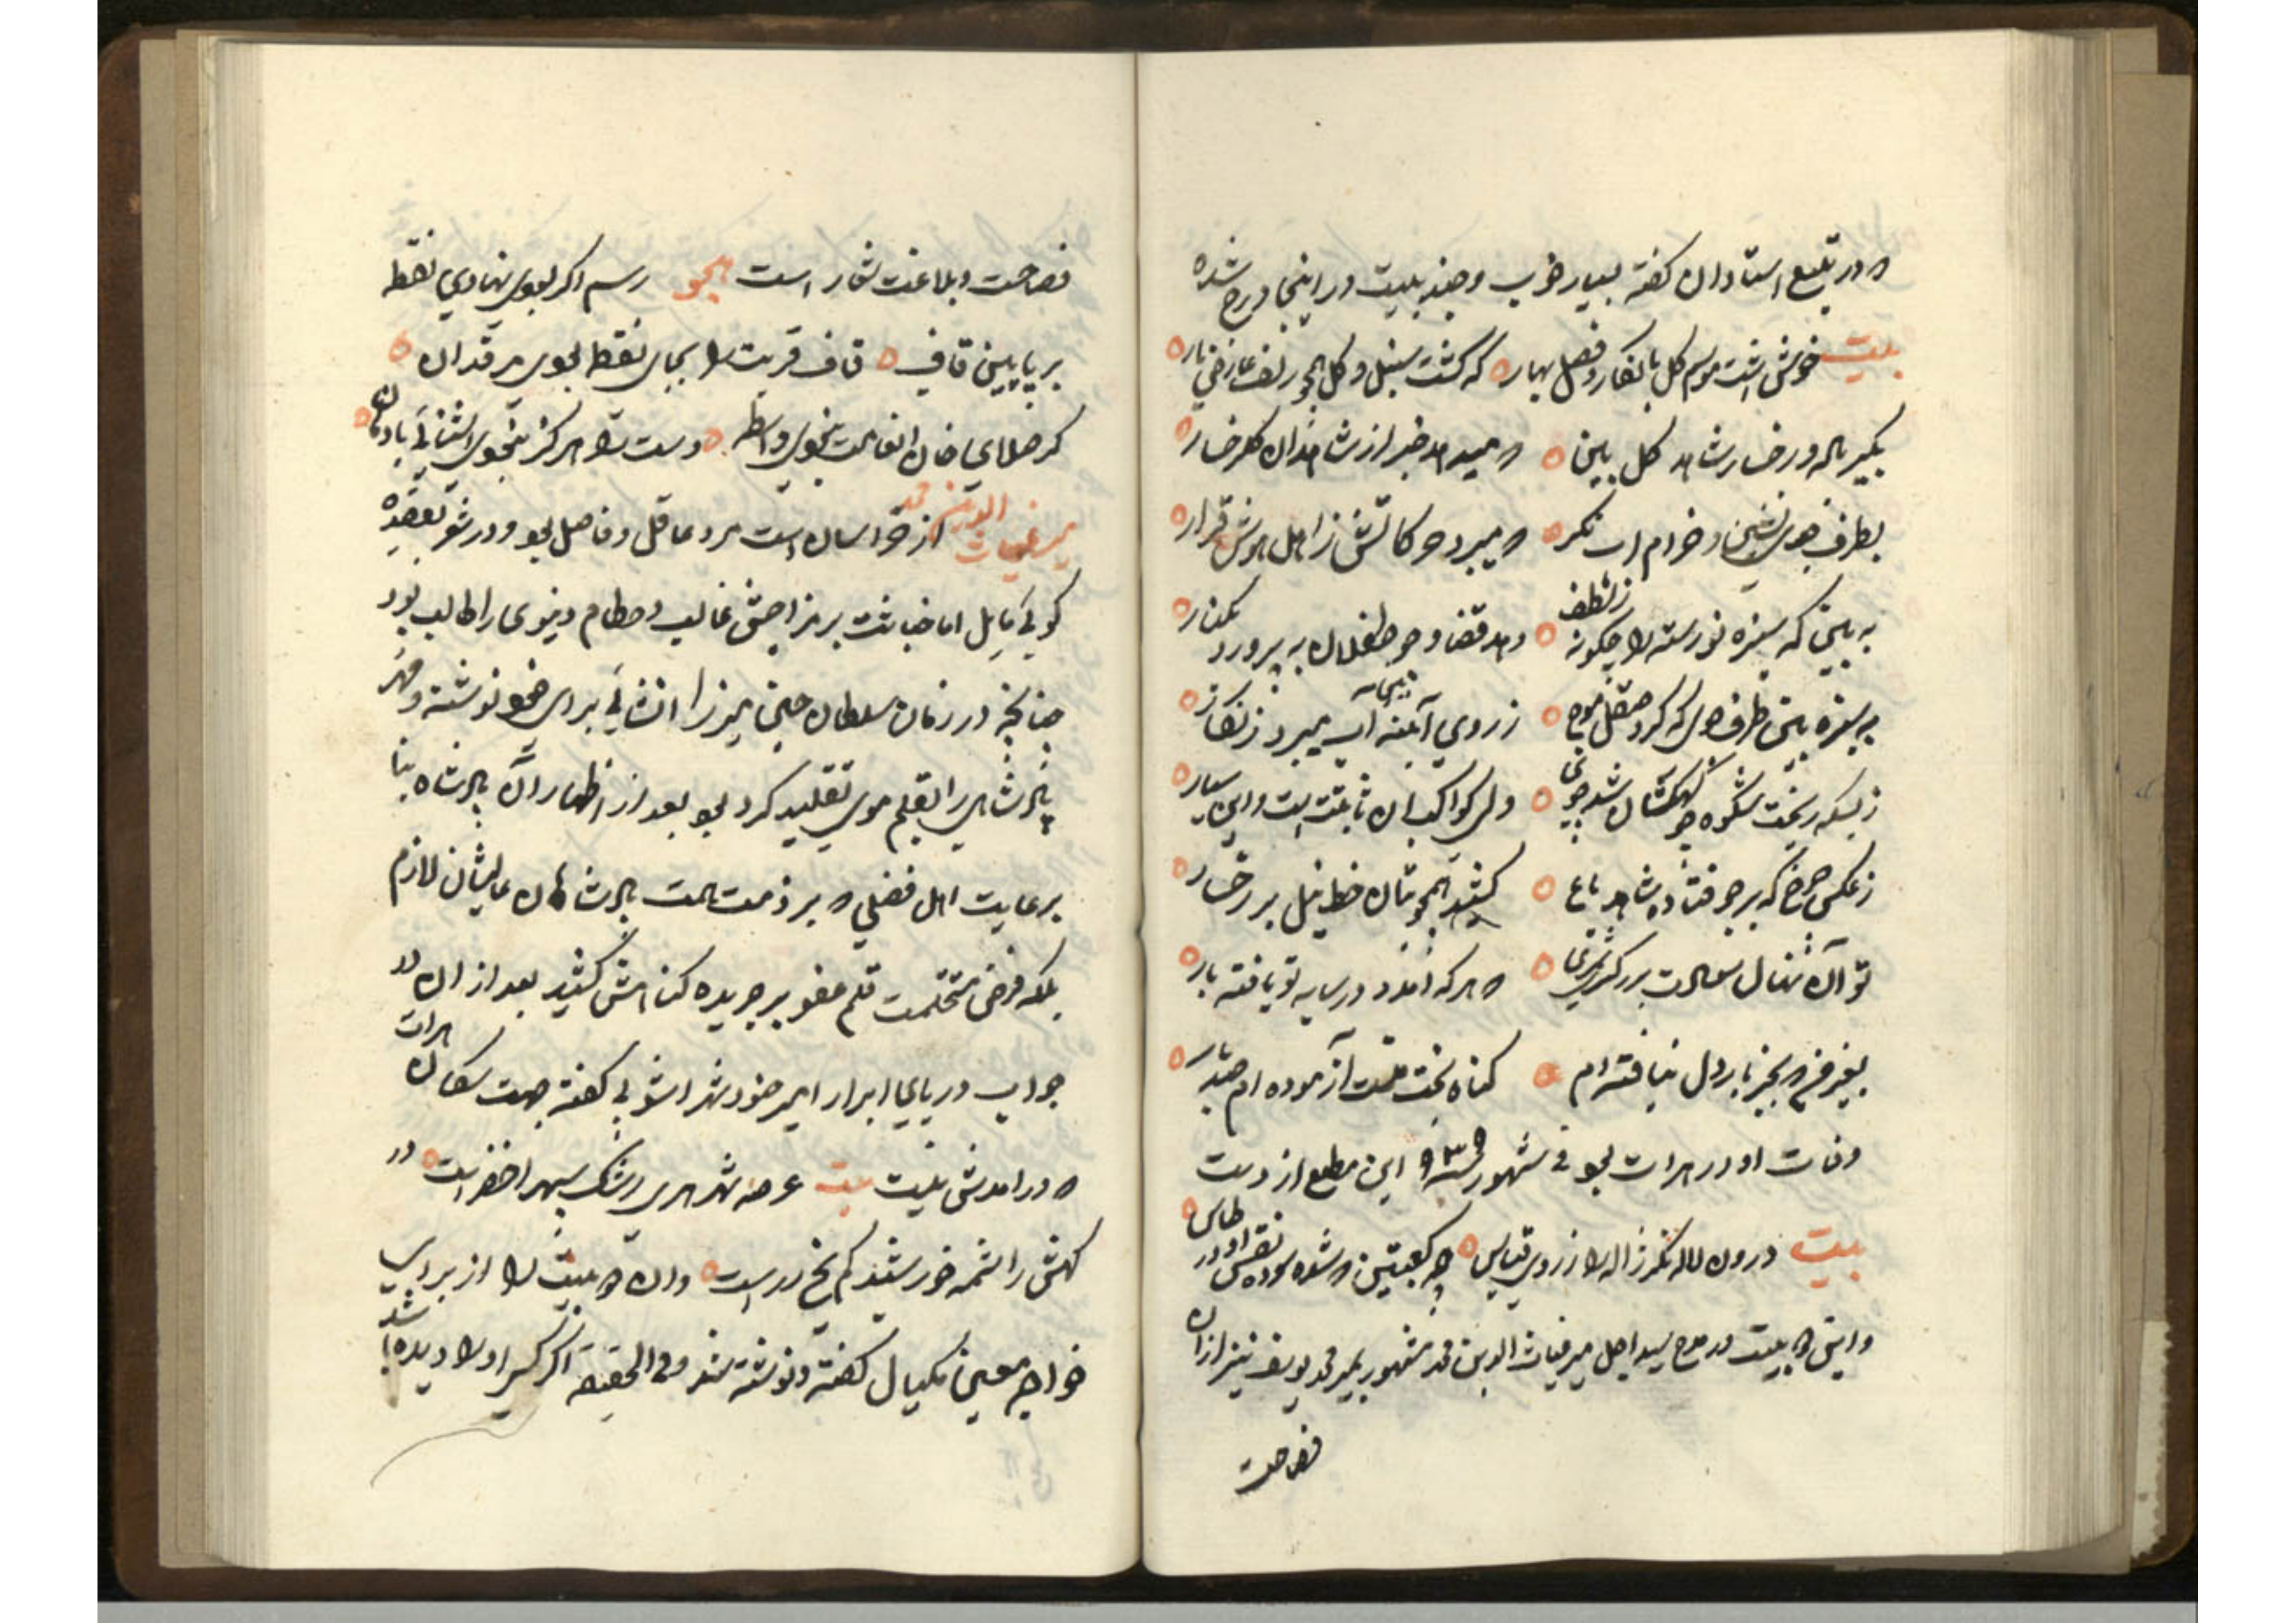 و در تتبع استادان گفته بسیار خوب و چند بیت در اینجا درج شده
بیت خوش است موسم گل با نگار و فصل بهار که گشت سنبل و گل همچو زلف عارض یار
بگیر باله و رخسار شاهد گل بین و میدهد خبر از شاهدان گلرخسار
بطرف جوی نشین و خرام آب نگر و میبرد حرکاتش ز اهل هوش قرار
به بین که سبزه نورسته را چگونه ز لطف دهد قضا و چو طفلان به پرورد بکنار
به سبزه بین طرف جوی که کرد صیقل موج ز روی آینه آب میبرد زنگار
ز بسکه ریخت شکوفه چو کهکشان شد جوی ولی کواکب آن ثابتست و این سیار
ز عکس چرخ که بر جو فتاده شاهد باغ کشید همچو بتان خط نیل بر رخسار
تو آن نهال سعادت بر و هر که آمد در سایه تو یافته بار
بغیر غم و بجز بار دل نیافته‌ام گناه بخت منست آزموده‌ام صد بار
وفات او در هرات بود فی شهور سنه ۹۳۵ این مطلع از دست
بیت درون لاله نگر ژاله را ز روی قیاس چه کعبتین و شده سوده نقش او در طاس
و این دو بیت در مدح سید اجل میر غیاث الدین محمد مشهور بمیر محمد یوسف نیز از آن
فصاحت
فصاحت و بلاغت شعار است هجو رسم اگر بودی نهادی نقطه
بر پایین قاف قاف قربت را بجای نقطه بودی فرقدان
گر صلای خان انعامت نبودی واسطه دست را هرگز نبودی آشنائی با دهان
میر غیاث الدین محمد از خراسان است مرد عاقل و فاضل بود و در شعر بقصیده
گوئی مایل اما خباثت بر مزاجش غالب و حطام دنیوی را طالب بود
چنانچه در زمان سلطان حسین میرزا انشائی برای خود نوشته و مهر
پادشاهی را بقلم موی تقلید کرد بود بعد از اظهار آن پادشاه بنا
برعایت اهل فضلی و بر ذمت همت پادشاهان عالیشان لازم
بلکه فرض متحتمست قلم عفو بر جریده گناهش کشید بعد از آن در
جواب دریای ابرار امیر خسرو شهراشوبی گفته جهت سکان هرات
و در آمدش بلیت بیت عرصه شهر هری رشک سپهر اخضر است در
کهش را شمه خورشید کم نخ زر است و این دو بیت را از برای
خواجه معین مکیال گفته و نوشته شد و فی الحقیقه اگر کسی او را دیده باشد